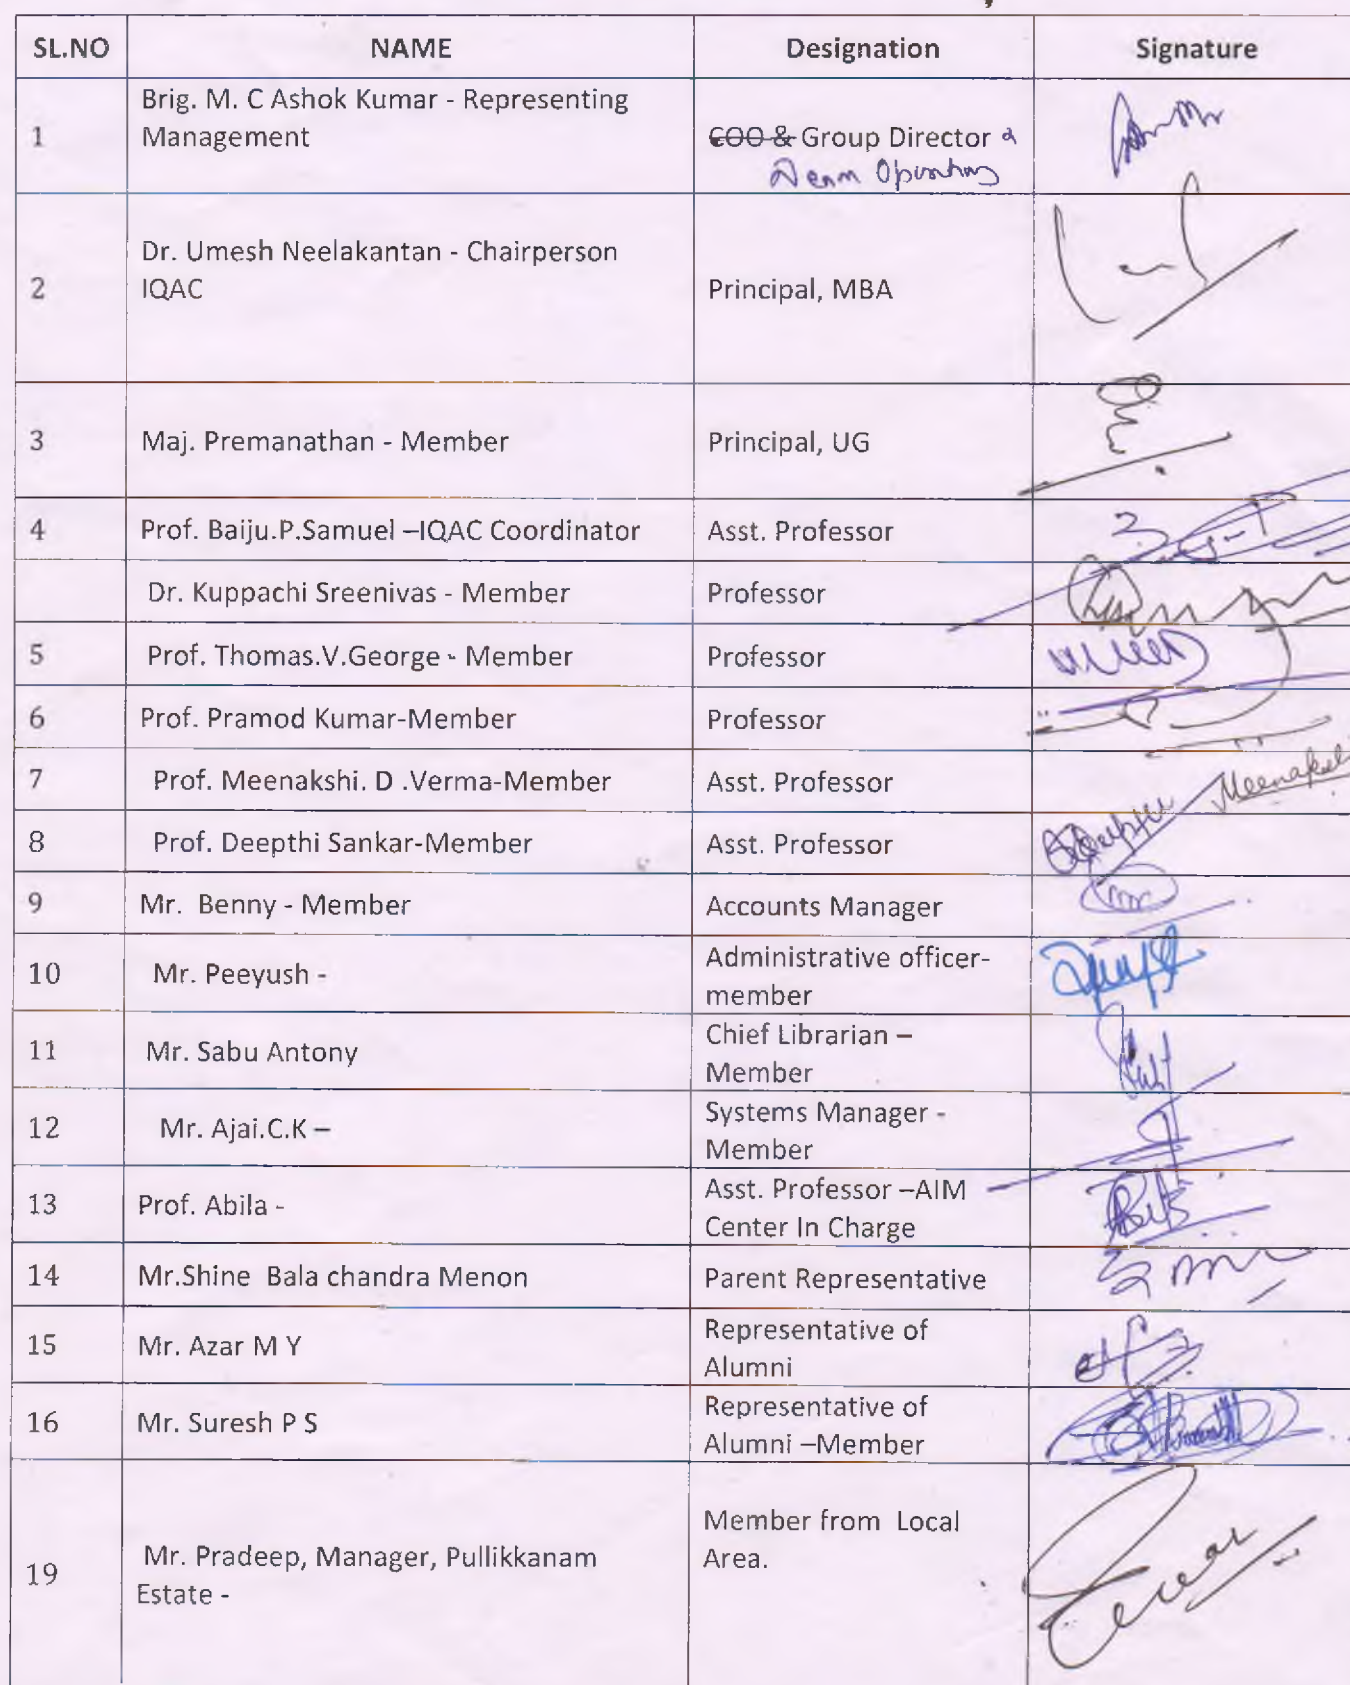 SL.NO NAME Designation Signature
Brig. M. C Ashok Kumar - Representing
1 Management COO & Group Director &
Dean Operations
Dr. Umesh Neelakantan - Chairperson
2 IQAC Principal, MBA
3 Maj. Premanathan - Member Principal, UG
4 Prof. Baiju.P.Samuel –IQAC Coordinator Asst. Professor
Dr. Kuppachi Sreenivas - Member Professor
5 Prof. Thomas.V.George - Member Professor
6 Prof. Pramod Kumar-Member Professor
7 Prof. Meenakshi. D .Verma-Member Asst. Professor Meenakshi
8 Prof. Deepthi Sankar-Member Asst. Professor
9 Mr. Benny - Member Accounts Manager
10 Mr. Peeyush - Administrative officer-
member
11 Mr. Sabu Antony Chief Librarian –
Member
12 Mr. Ajai.C.K – Systems Manager -
Member
13 Prof. Abila - Asst. Professor –AIM
Center In Charge
14 Mr.Shine Bala chandra Menon Parent Representative
15 Mr. Azar M Y Representative of
Alumni
16 Mr. Suresh P S Representative of
Alumni –Member
19 Mr. Pradeep, Manager, Pullikkanam Member from Local
Estate - Area.